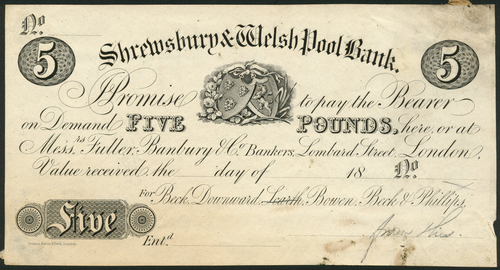 No.
5 Shrewsbury & Welsh Pool Bank. 5
I Promise to pay the Bearer
on Demand FIVE POUNDS, here, or at
Mess.rs Fuller, Banbury & Co. Bankers, Lombard Street, London,
Value received, the day of 18 No.
For Beck, Downward, Scarth, Bowen, Beck & Phillips,
Five
Ent.d